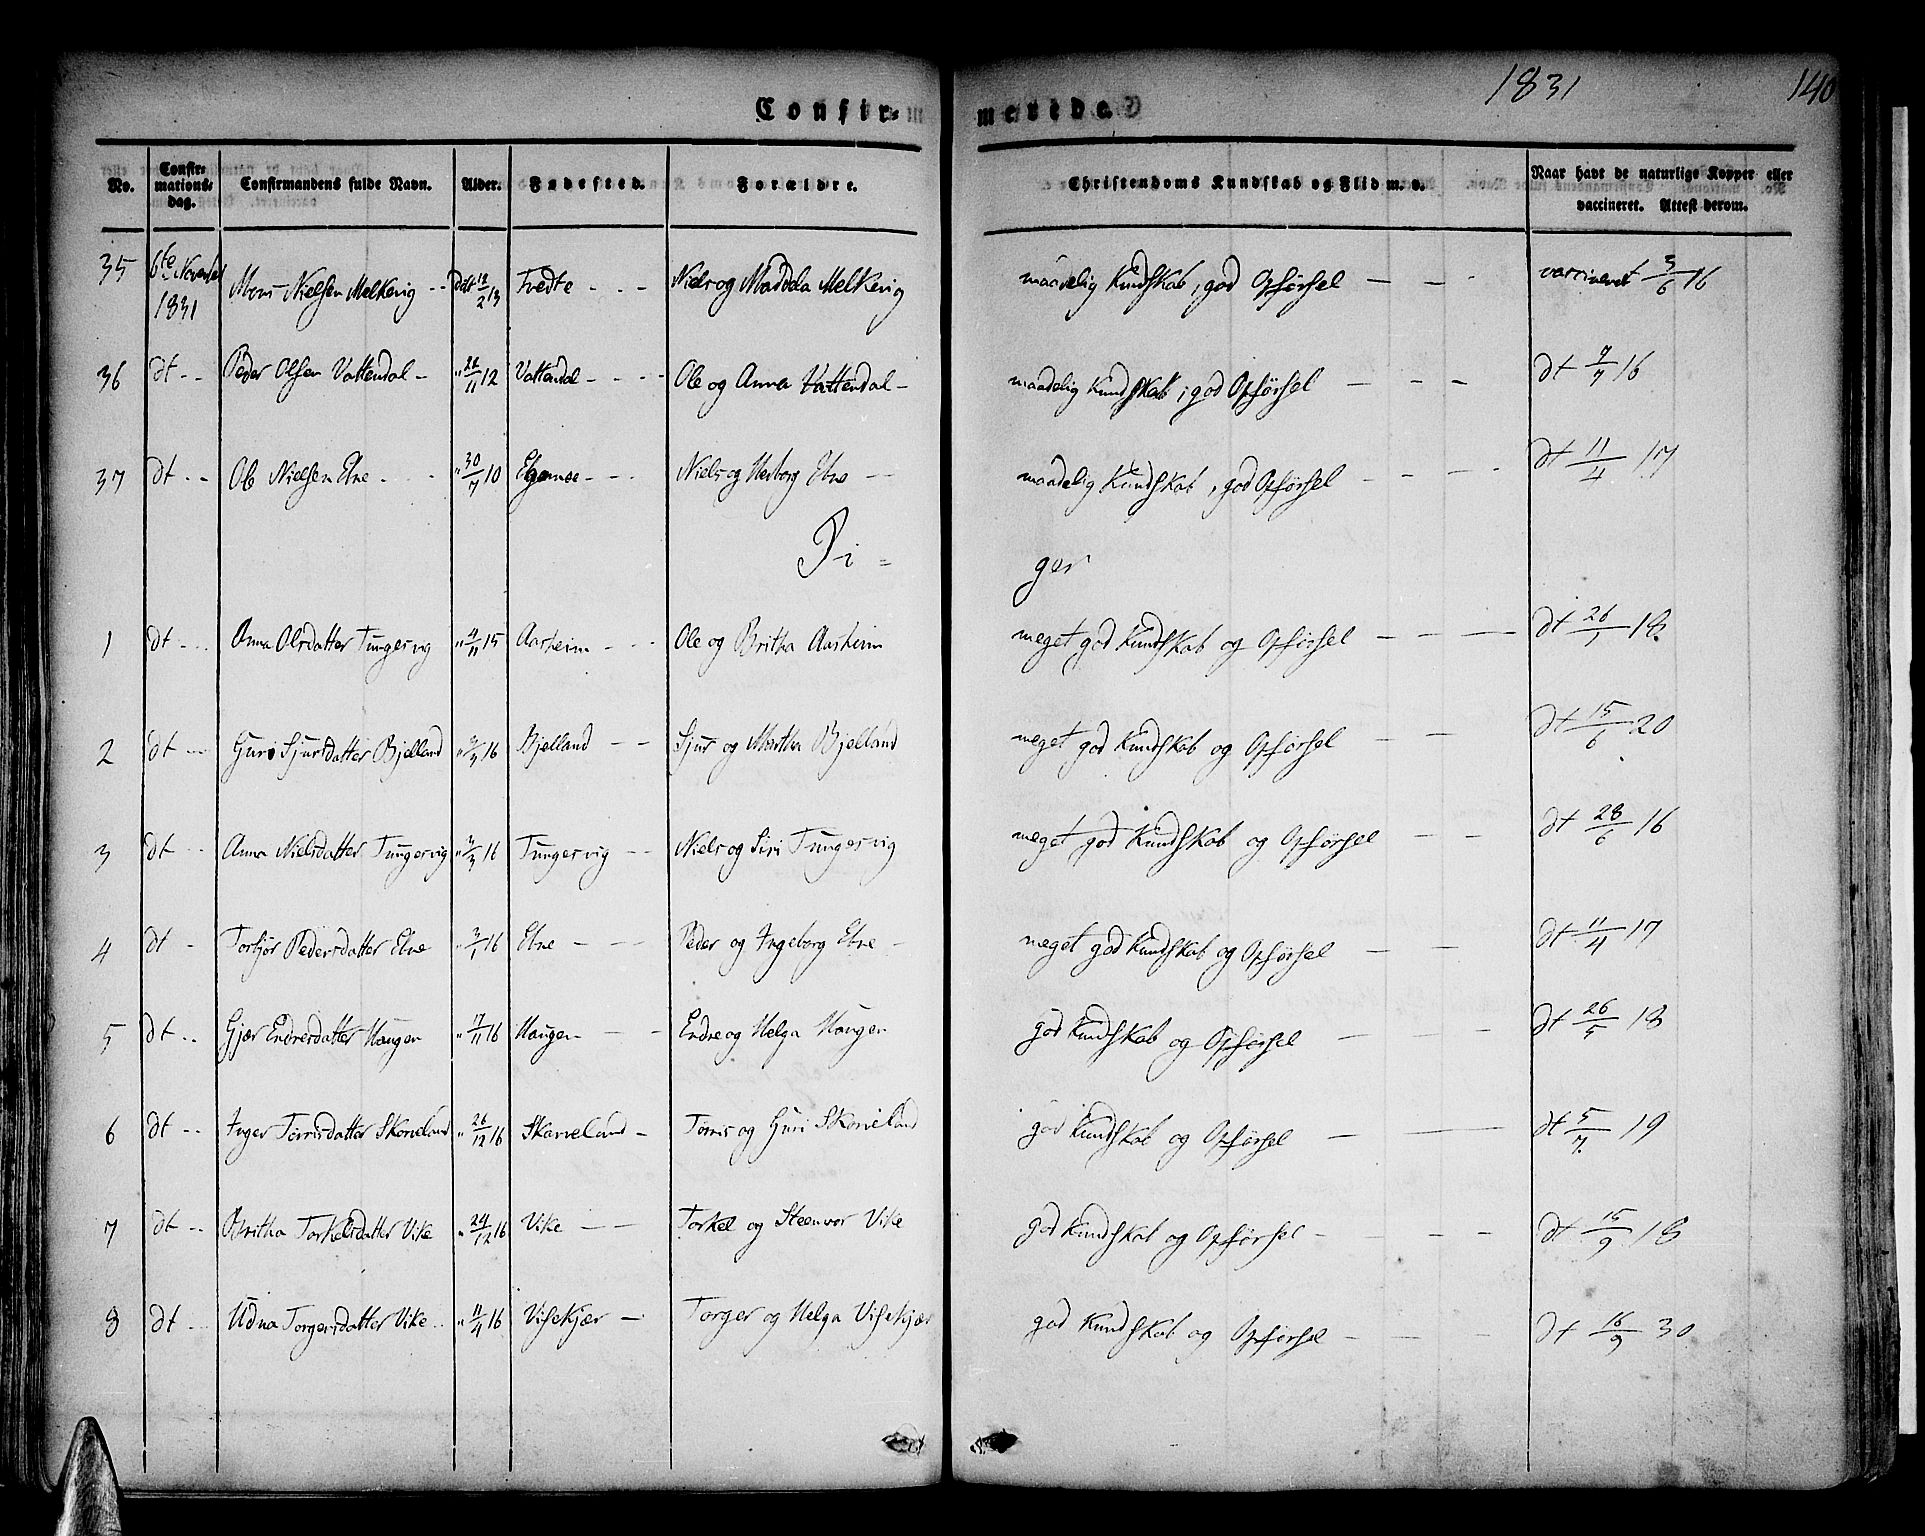 1831 140
Confir- merede.
No. Confir-mations-dag. Confirmandens fulde Navn. Alder. Fødested. Forældre. Christendoms Kundskab og Flid m. v. Naar havt de naturlige Kopper eller vaccineret. Attest derom.
35 6te November 1831 Mons Nielsen Melkevig -- Døbt 12/2 13 Tvedte - - - Niels og Madela Melkevig maadelig Kundskab, god Opførsel — — - vaccineret 3/6 16
36 dt -- Peder Olsen Vattendal - " 22/11 12 Vattendal - - - - Ole og Anna Vattendal - maadelig Kundskab, god Opførsel — — - dt 7/7 16
37 dt -- Ole Nielsen Etne - - - " 30/7 10 Egernæs - - - Niels og Herborg Etne -- maadelig Kundskab, god Opførsel - - - - dt 11/4 17
Pi = ger
1 dt -- Anna Olsdatter Tungesvig " 4/11 15 Aarheim - - - Ole og Britha Aarheim meget god Kundskab og Opførsel — — — dt 26/1 18
2 dt -- Guri Sjursdatter Bjelland " 2/3 16 Bjelland - - Sjur og Martha Bjelland meget god Kundskab og Opførsel — — dt 15/6 20
3 dt -- Anna Nielsdatter Tungesvig " 2/3 16 Tungesvig -- Niels og Siri Tungesvig meget god Kundskab og Opførsel — — dt 28/6 16
4 dt - Torbjør Pedersdatter Etne " 3/1 16 Etne - - - Peder og Ingeborg Etne - meget god Kundskab og Opførsel — — dt 11/4 17
5 dt -- Gjør Endresdatter Haugen " 17/11 16 Haugen - - - Endre og Helga Haugen god Kundskab og Opførsel — — - dt 26/5 18
6 dt -- Inger Tørrisdatter Skorveland " 26/12 16 Skarveland - Tørris og Guri Skarveland god Kundskab og Opførsel — — dt 5/7 19
7 dt -- Britha Torkelsdatter Vike " 24/12 16 Vike - - Torkel og Steenvor Vike god Kundskab og Opførsel - - - - dt 15/9 18
8 dt -- Udna Torgersdatter Vike -- " 11/4 16 Visekjær - Torger og Helga Visekjær god Kundskab og Opførsel - - - - dt 16/9 30